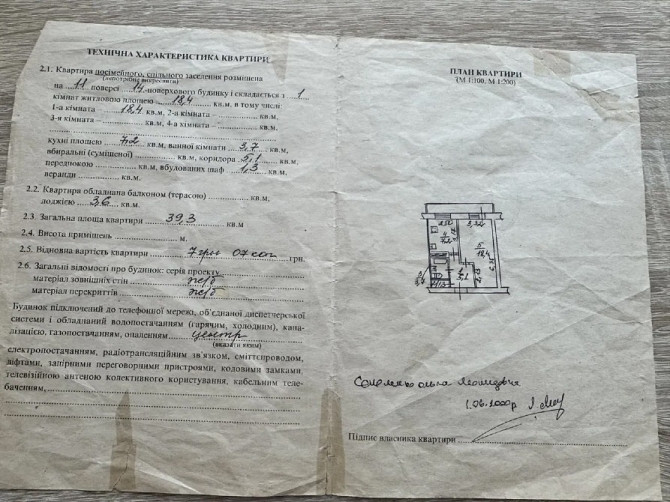 ТЕХНІЧНА ХАРАКТЕРИСТИКА КВАРТИРИ
2.1. Квартира посімейного, спільного заселення розміщена
(непотрібне викреслити)
на 11 поверсі 14 -поверхового будинку і складається з 1
кімнат житловою площею 18,4 кв.м, в тому числі
1-а кімната 18,4 кв.м, 2-а кімната кв.м,
3-я кімната кв.м, 4-а кімната кв.м.
кухні площею 7,2 кв.м, ванної кімнати 3,7 кв.м,
вбиральні (суміщеної) кв.м, коридора 5,1 кв.м,
передпокою кв.м, вбудованих шаф 1,3 кв.м,
веранди кв.м.
2.2. Квартира обладнана балконом (терасою) кв.м,
лоджією 3,6 кв.м.
2.3. Загальна площа квартири 39,3 кв.м
2.4. Висота приміщень м.
2.5. Відновна вартість квартири 7 грн 07 коп грн.
2.6. Загальні відомості про будинок: серія проекту
матеріал зовнішніх стін ж/б
матеріал перекриттів ж/б
Будинок підключений до телефонної мережі, об'єднаної диспетчерської
системи і обладнаний водопостачанням (гарячим, холодним), кана-
лізацією, газопостачанням, опаленням центр
(вказати яким)
електропостачанням, радіотрансляційним зв'язком, сміттєпроводом,
ліфтами, запірними переговорними пристроями, кодовими замками,
телевізійною антеною колективного користування, кабельним теле-
баченням,
ПЛАН КВАРТИРИ
(М 1:100, М 1:200)
5
18,4
4
7,2
Ольга Леонідівна
1.06.2000р
Підпис власника квартири